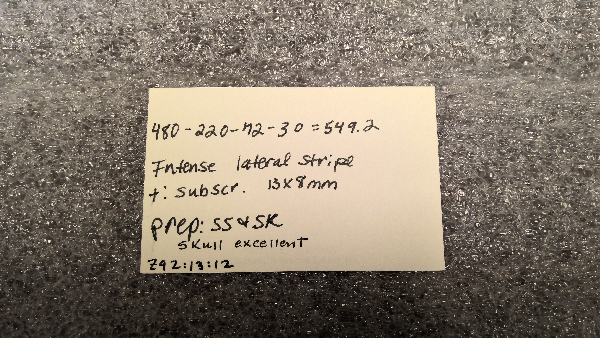 480-220-72-30=549.2
Intense lateral stripe
t: subscr. 13x8mm
prep: SS & SK
skull excellent
Z92:13:12